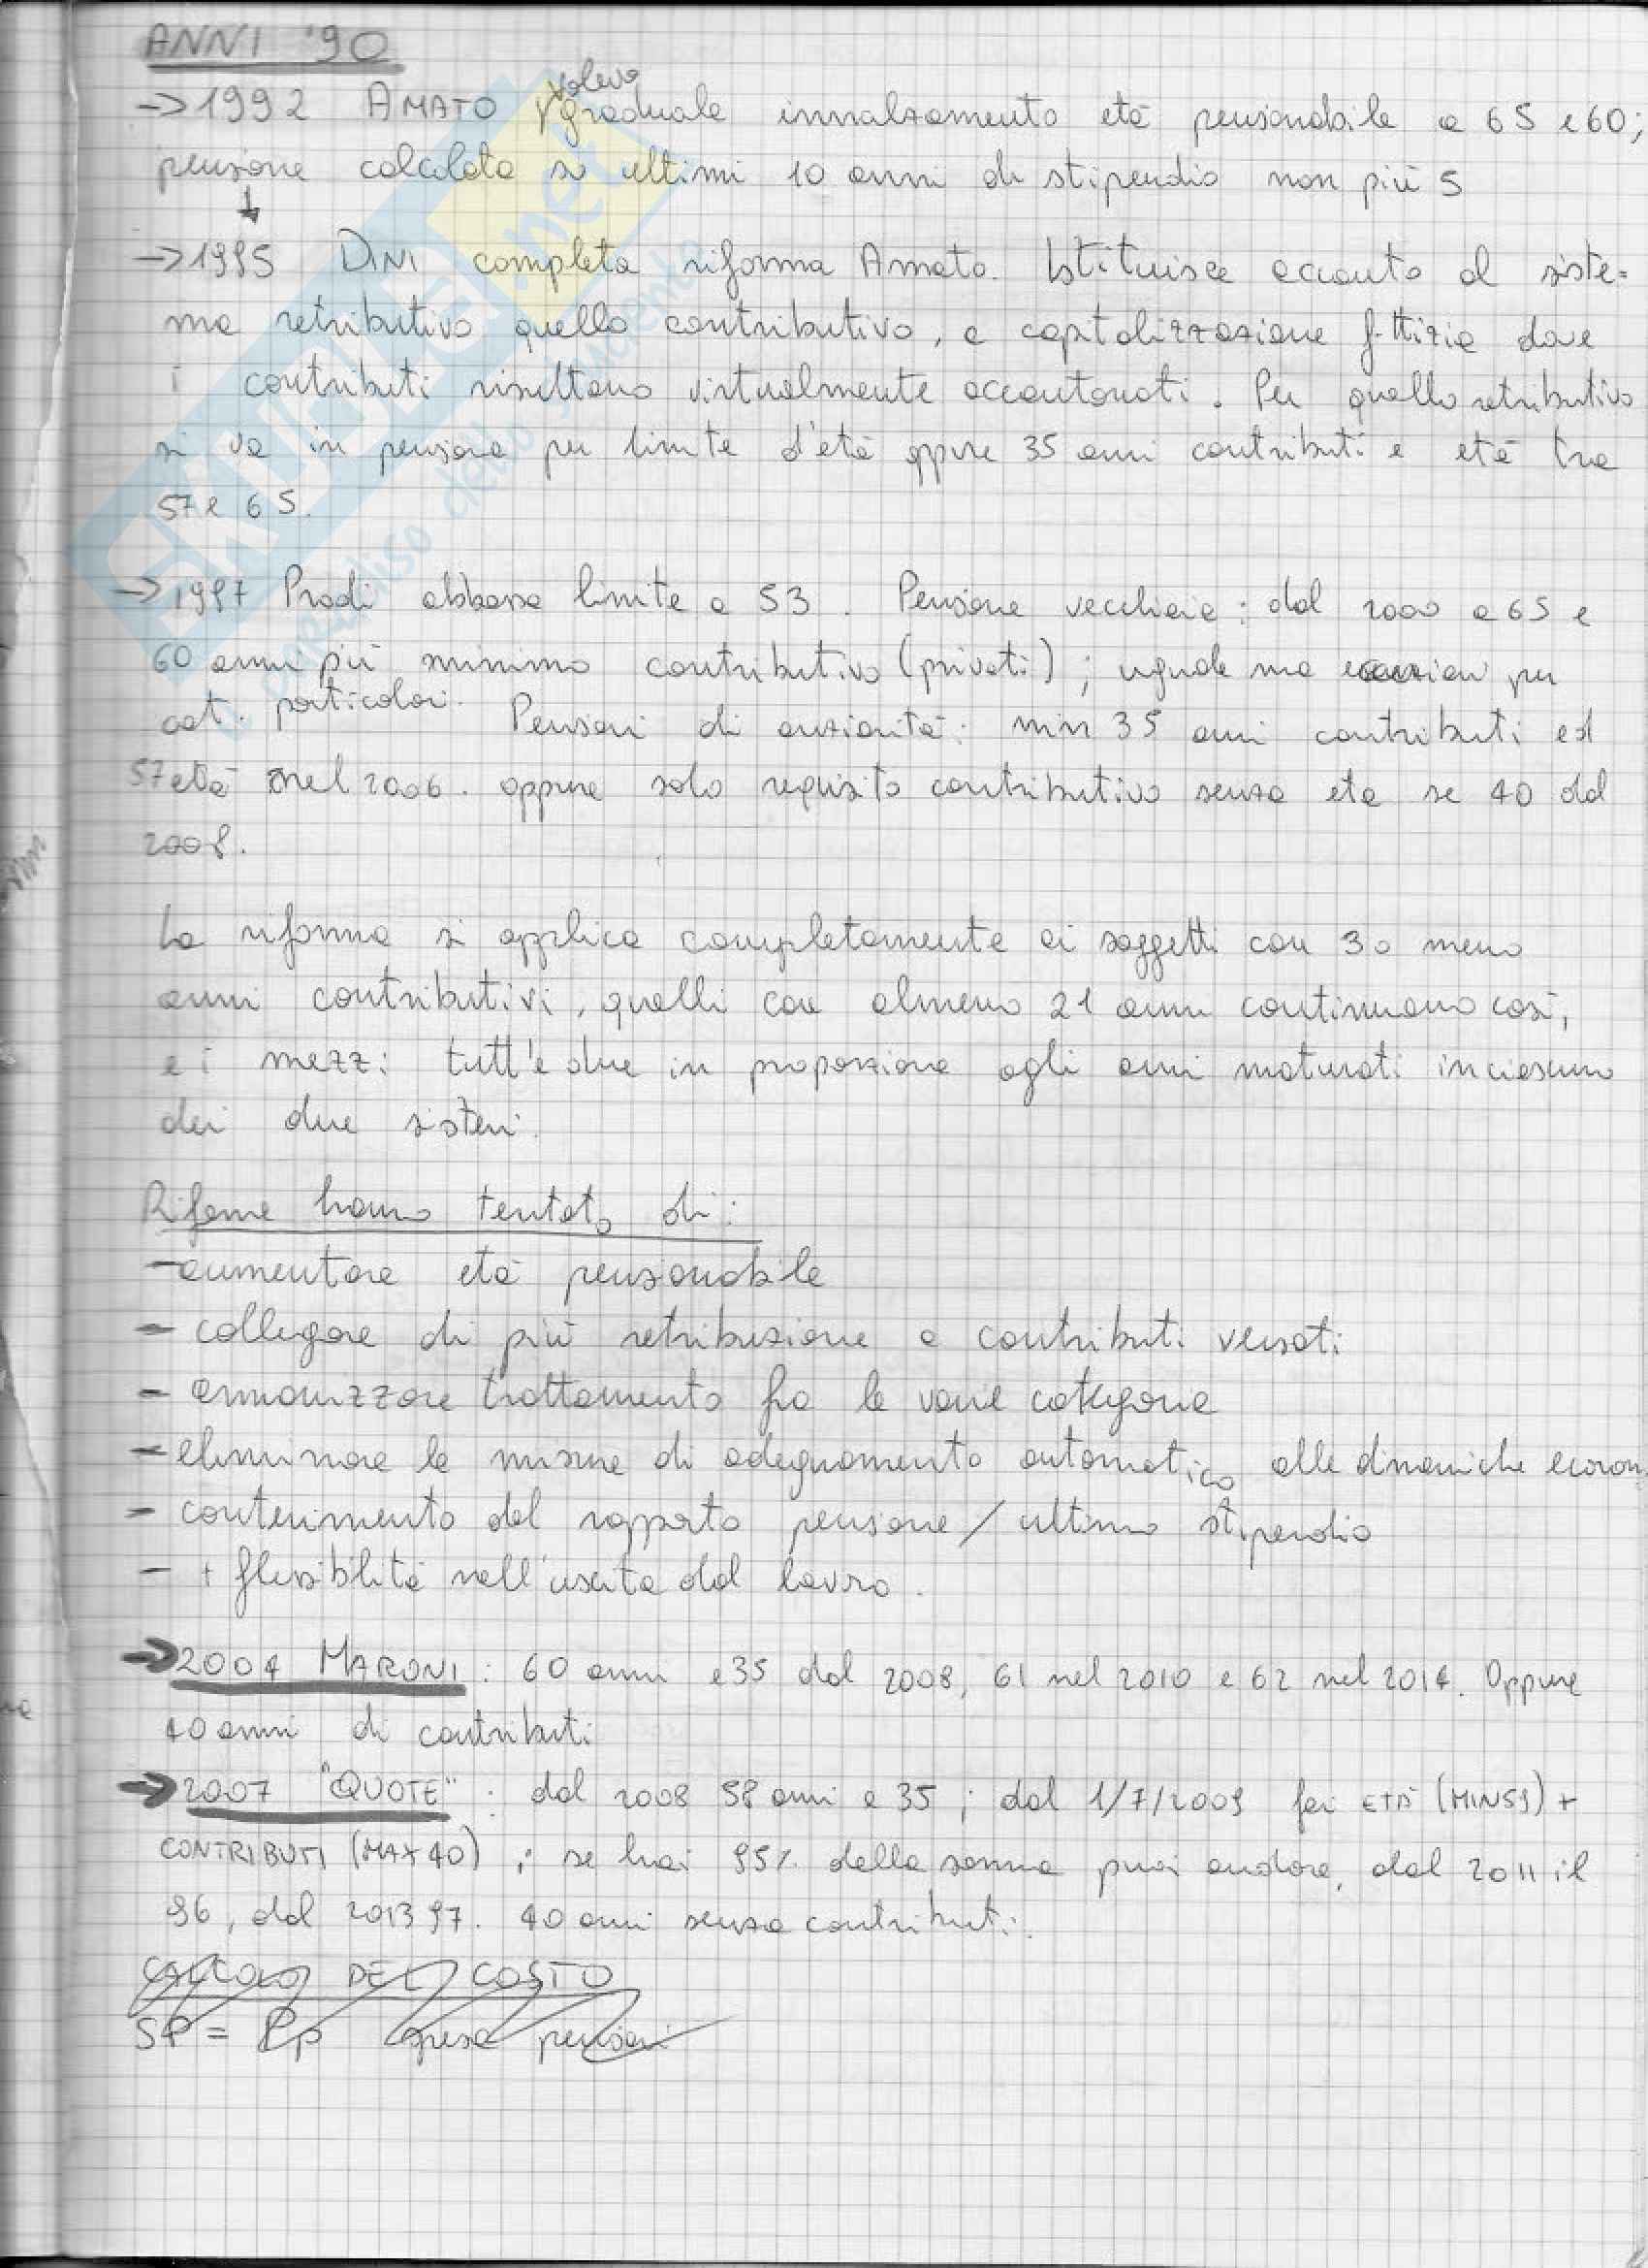 ANNI '90
voleva
→ 1992 AMATO graduale innalzamento età pensionabile a 65 e 60;
pensione calcolata su ultimi 10 anni di stipendio non più 5
↓
→ 1995 DINI completa riforma Amato. Istituisce accanto al siste=
ma retributivo quello contributivo, a capitalizzazione fittizia dove
i contributi risultano virtualmente accantonati. Per quello retributivo
si va in pensione per limite d'età oppure 35 anni contributi e età tra
57 e 65.
→ 1997 Prodi abbassa limite a 53. Pensione vecchiaia: dal 2000 a 65 e
60 anni più minimo contributivo (privati); uguale ma eccezioni per
cat. particolari. Pensioni di anzianità: min 35 anni contributi ed
57 età nel 2006. oppure solo requisito contributivo senza età se 40 dal
2008.
La riforma si applica completamente ai soggetti con 3 o meno
anni contributivi, quelli con almeno 21 anni continuano così,
e i mezzi tutt'e due in proporzione agli anni maturati in ciascuno
dei due sistemi.
Riforme hanno tentato di:
- aumentare età pensionabile
- collegare di più retribuzione a contributi versati
- armonizzare trattamento fra le varie categorie
- eliminare le misure di adeguamento automatico alle dinamiche econom.
- contenimento del rapporto pensione / ultimo stipendio
- + flessibilità nell'uscita dal lavoro.
→ 2004 MARONI: 60 anni e 35 dal 2008, 61 nel 2010 e 62 nel 2014. Oppure
40 anni di contributi
→ 2007 "QUOTE": dal 2008 58 anni e 35; dal 1/7/2009 fai ETÀ (MIN59) +
CONTRIBUTI (MAX 40); se hai 95% della somma puoi andare, dal 2011 il
96, dal 2013 97. 40 anni senza contributi.
CALCOLO DEL COSTO
SP = Pp spesa pensioni
SKUOLA.net
il paradiso dello studente